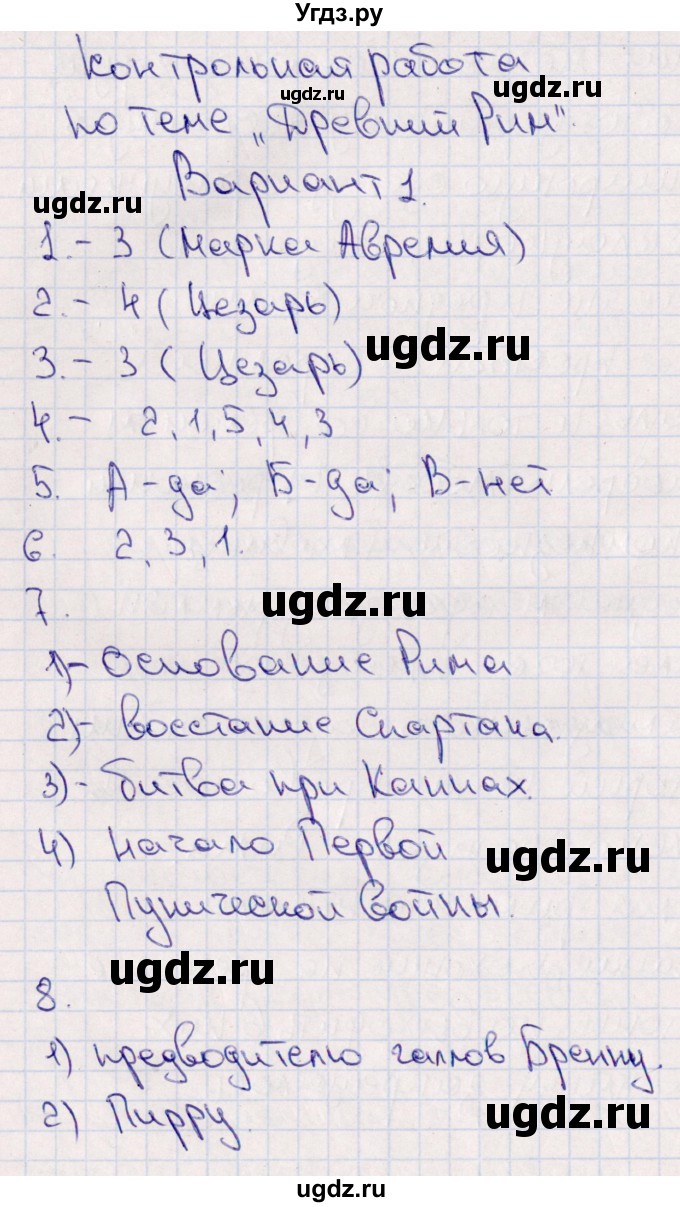 Угдз.ру
Контрольная работа
ugdz.ru
ugdz.ru
по теме „Древний Рим".
Вариант 1.
ugdz.ru
1. - 3 (Марка Аврелия)
2. - 4 (Цезарь)
ugdz.ru
3. - 3 (Цезарь)
4. - 2, 1, 5, 4, 3
5. А - да; Б - да; В - нет
6. 2, 3, 1.
ugdz.ru
7.
1) - Основание Рима
2) - восстание Спартака.
3) - битва при Каннах.
4) Начало Первой
ugdz.ru
Пунической войны.
ugdz.ru
8.
1) предводителю галлов Бренну.
2) Пирру.
ugdz.ru
ugdz.ru